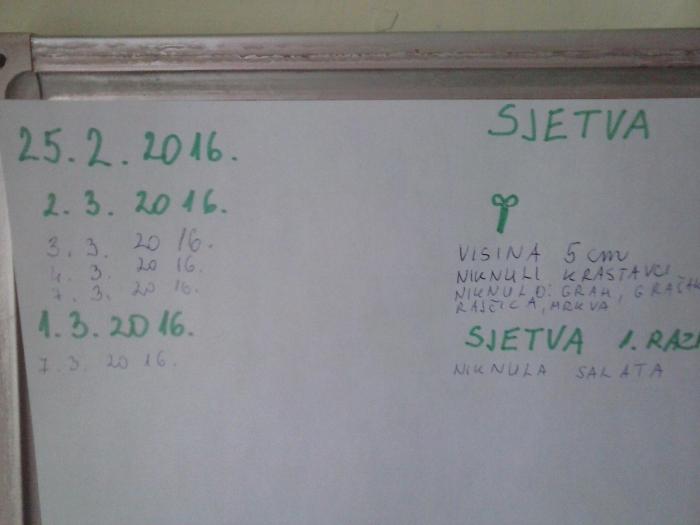 25.2.2016. SJETVA
2.3.2016.
3.3.2016. VISINA 5 cm
4.3.2016. NIKNULI KRASTAVCI
7.3.2016. NIKNULO: GRAH, GRAŠAK
RAJČICA, MRKVA
1.3.2016. SJETVA 1. RAZ
7.3.2016. NIKNULA SALATA